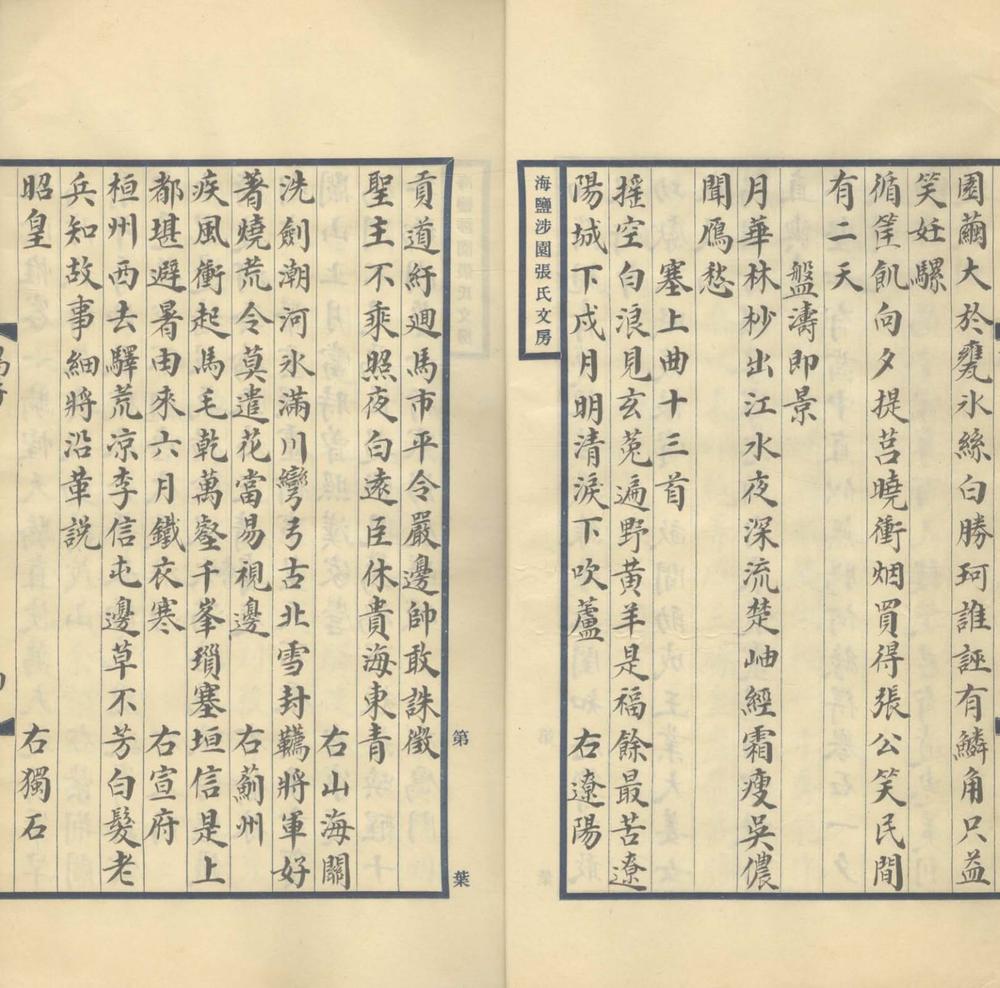 園繭大於甕氷絲白勝珂誰誣有鱗角只益
笑妊騾
循筐飢向夕提莒曉衝烟買得張公笑民間
有二天
盤濤即景
月華林杪出江水夜深流楚岫經霜瘦吳儂
聞鴈愁
塞上曲十三首
摇空白浪見玄菟遍野黄羊是福餘最苦遼
陽城下戍月明清淚下吹蘆 右遼陽
海鹽涉園張氏文房
貢道紆迴馬市平令嚴邊帥敢誅徵
聖主不乘照夜白遠臣休貴海東青
右山海關
洗劍潮河氷滿川彎弓古北雪封韉將軍好
著燒荒令莫遣花當易視邊 右薊州
疾風衝起馬毛乾萬壑千峯瑣塞垣信是上
都堪避暑由來六月鐵衣寒 右宣府
桓州西去驛荒凉李信屯邊草不芳白髮老
兵知故事細將沿革説
昭皇 右獨石
第 葉